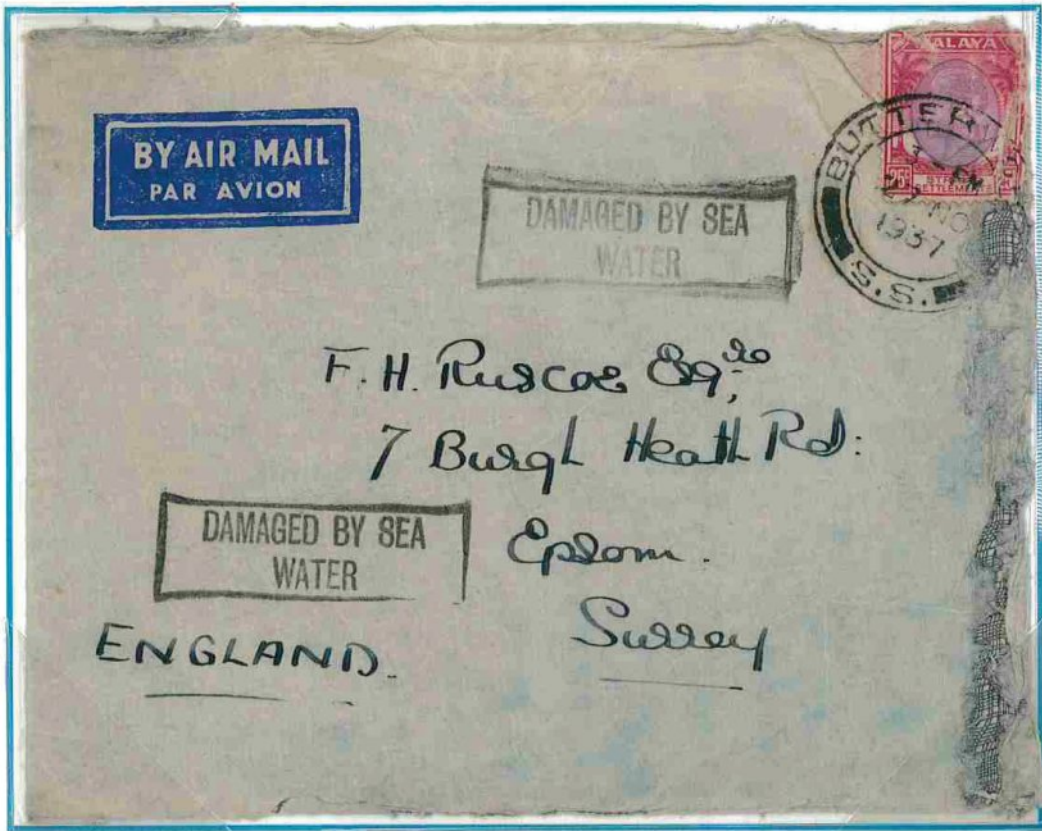 BY AIR MAIL
PAR AVION
MALAYA
25c
SETTLEMENTS
BUTTER
PM
NO
1937
S.S.
DAMAGED BY SEA
WATER
F. H. Ruscoe Esqre,
7 Burgh Heath Rd:
Epsom.
Surrey
DAMAGED BY SEA
WATER
ENGLAND.